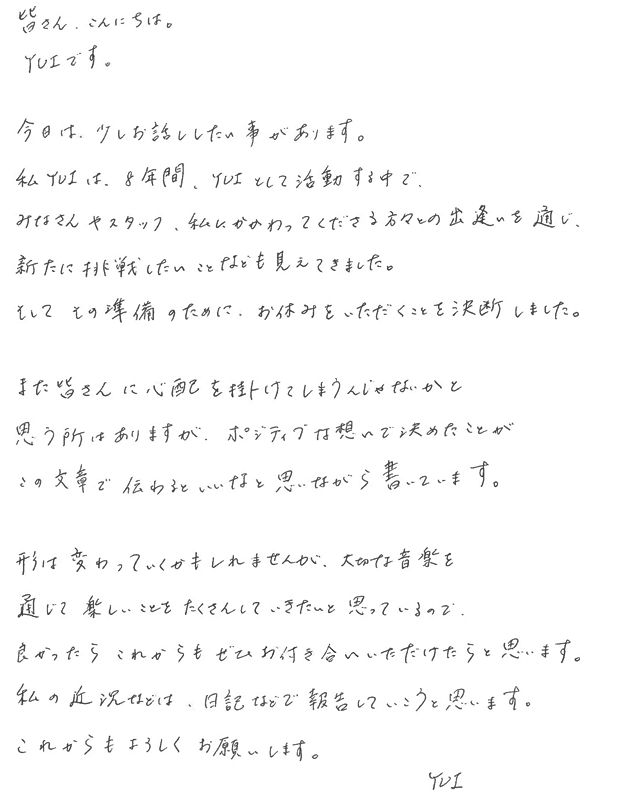 皆さん、こんにちは。
YUIです。
今日は、少しお話ししたい事があります。
私YUIは、8年間、YUIとして活動する中で、
みなさんやスタッフ、私にかかわってくださる方々との出逢いを通じ、
新たに挑戦したいことなども見えてきました。
そして その準備のために、お休みをいただくことを決断しました。
また皆さんに心配を掛けてしまうんじゃないかと
思う所はありますが、ポジティブな想いで決めたことが
この文章で伝わるといいなと思いながら書いています。
形は変わっていくかもしれませんが、大切な音楽を
通じて楽しいことをたくさんしていきたいと思っているので、
良かったら これからも ぜひお付き合いいただけたらと思います。
私の近況などは、日記などで報告していこうと思います。
これからもよろしくお願いします。
YUI